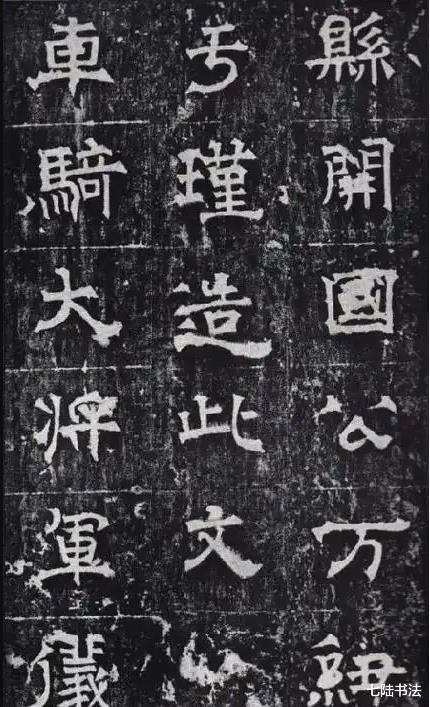 縣開國公万紐
于瑾造此文
車騎大將軍儀
七陆书法